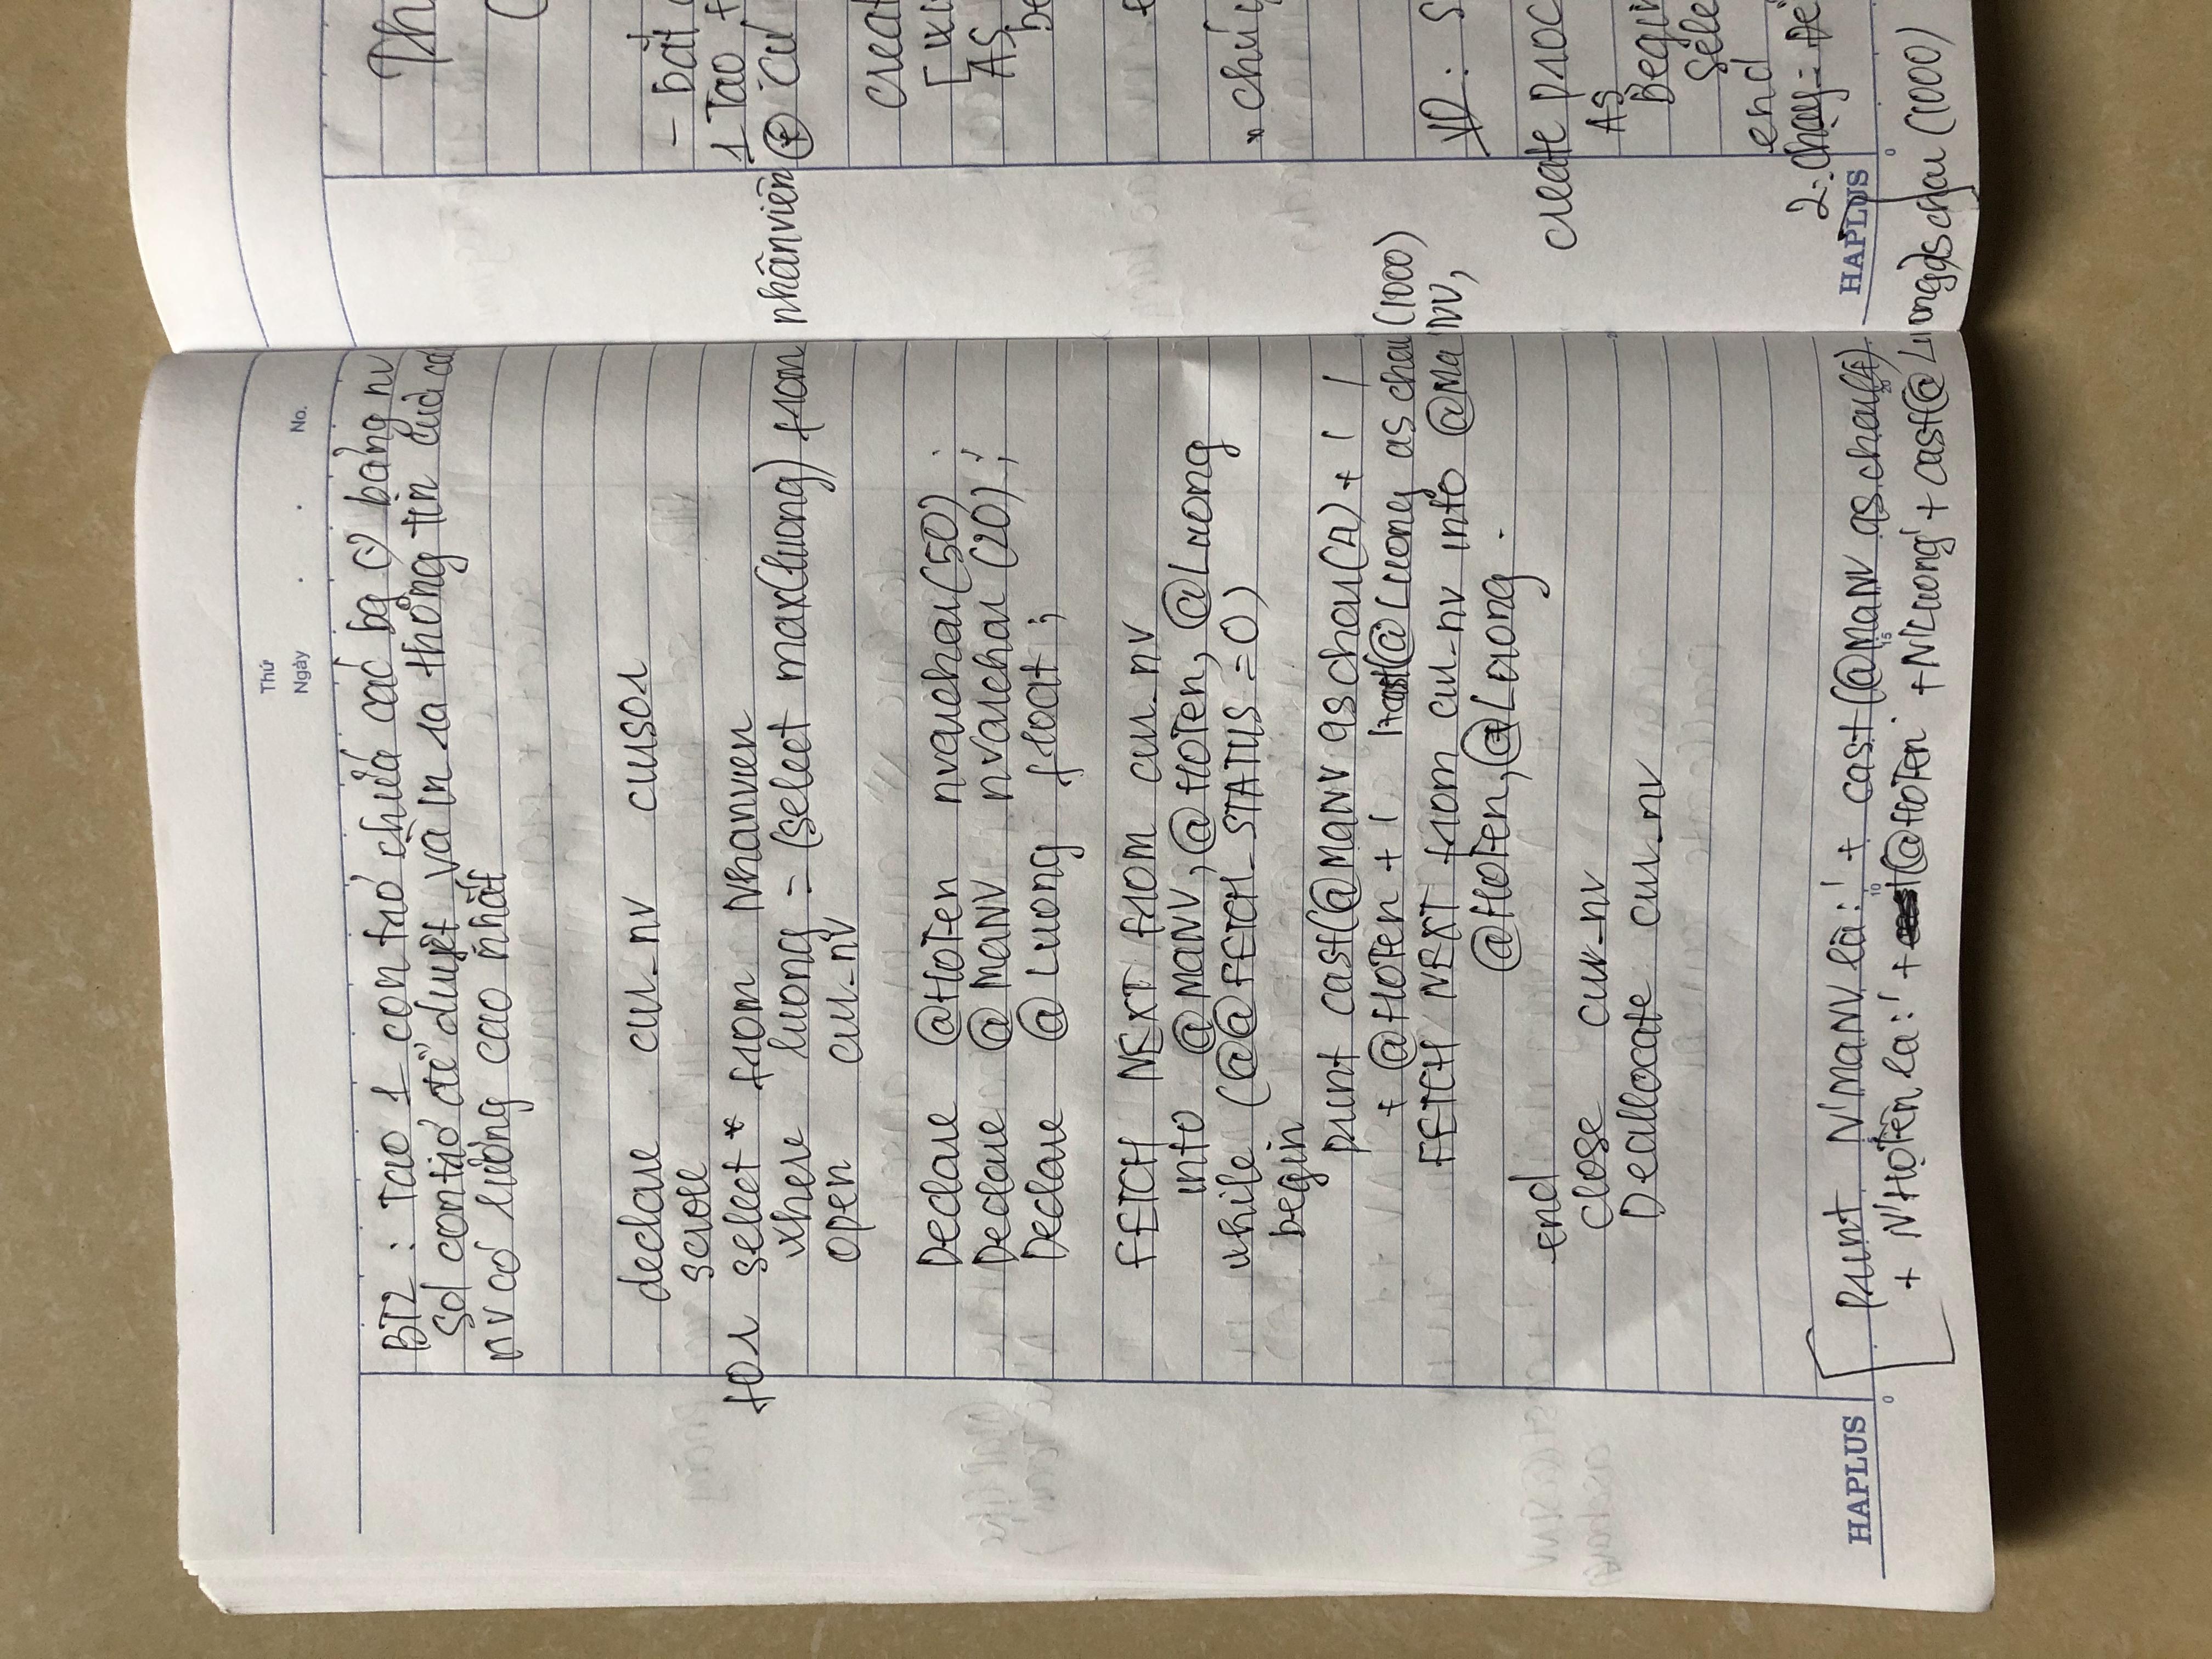 Thứ
Ngày . . No.
BT2 : Tạo 1 con trỏ chứa các bg bảng nv
sd con trỏ để duyệt và in ra thông tin của cá
nv có lương cao nhất
declare cur_nv cursor
scroll
for select * from Nhanvien
where luong = (select max(luong) from nhânviên
open cur_nv
Declare @HoTen nvarchar(50) ;
Declare @MaNV nvarchar (20) ;
Declare @Luong float ;
FETCH NEXT from cur_nv
into @MaNV, @HoTen, @Luong
while (@@FETCH_STATUS = 0)
begin
print cast(@MaNV as char() + ' '
+ @HoTen + ' '+cast(@Luong as char(1000)
FETCH NEXT from cur_nv into @MaNV,
@HoTen, @Luong .
end
close cur_nv
Deallocate cur_nv
print N'MaNV là:' + cast(@MaNV as char()
+ N'Họ Tên la:' + (@HoTen + N'Luong' + cast(@Luong) as char (1000)
HAPLUS
0 10 15 20
Th
(
- bắt
1 Tạo
Cú
creat
[
AS
be
chú ý
VD : S
create proc
As
Begin
Sele
end
2. Chạy =
HAPLUS
0